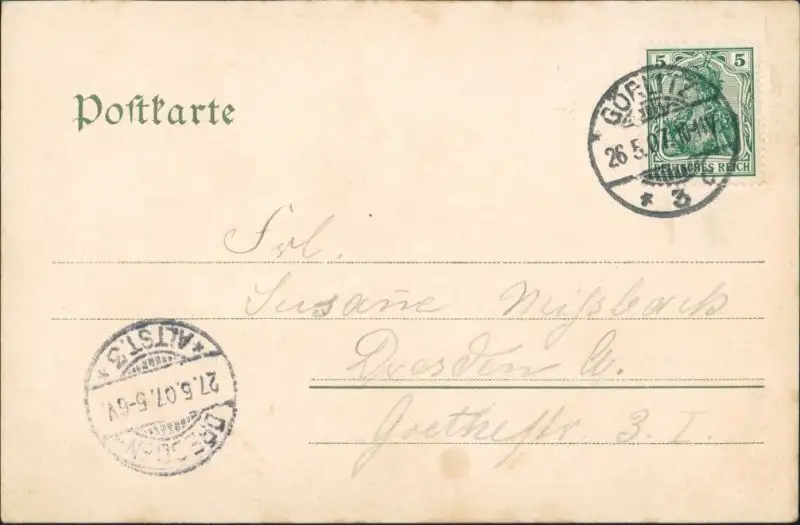 Postkarte
5 5
DEUTSCHES REICH
GÖRLITZ
26.5.07. 10-11V.
* 3 c
Frl.
Susanne Mißbach
Dresden A.
Goethestr. 3. I.
* ALTST. 3 *
27.5.07. 5-6V.
DRESDEN